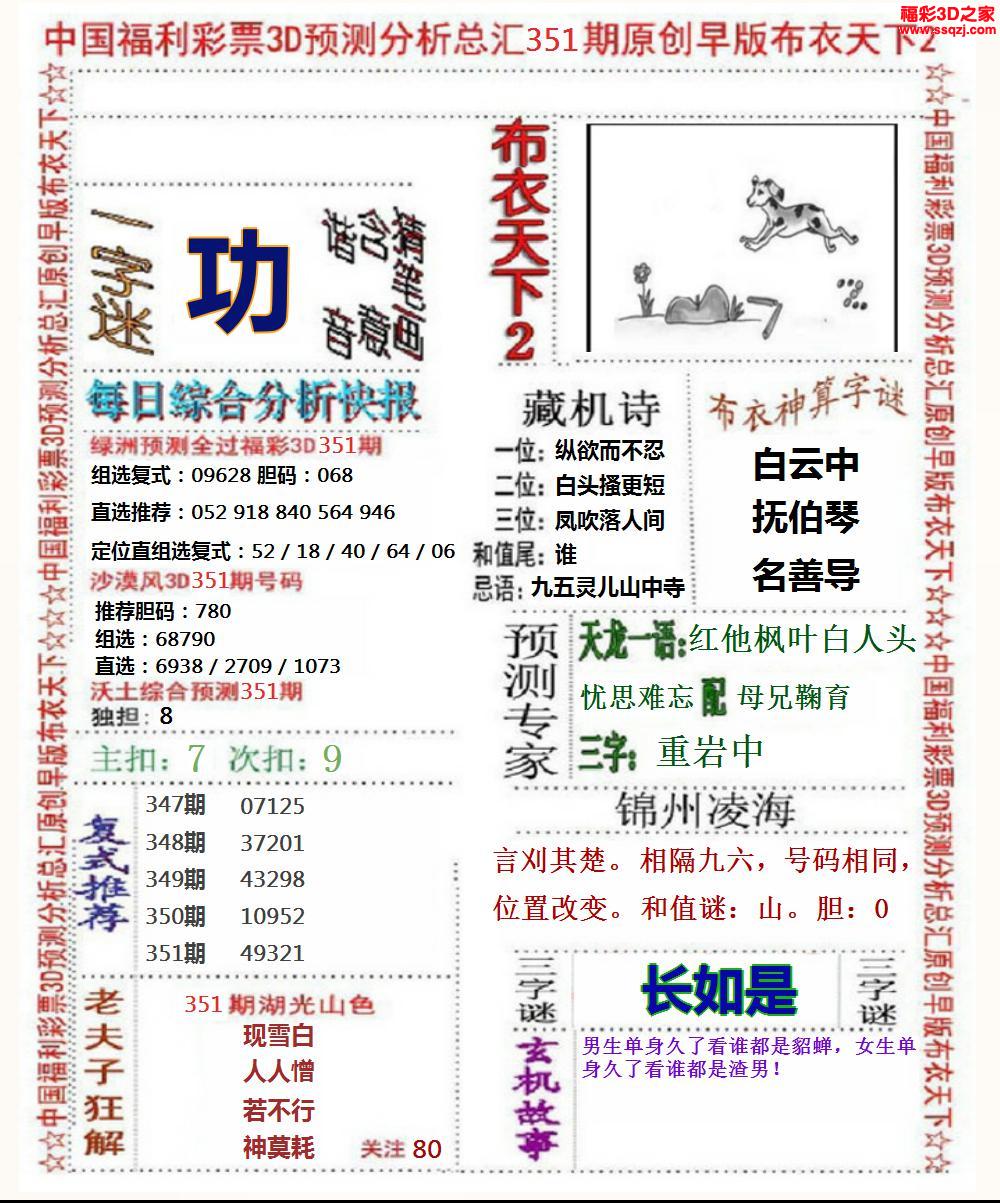 福彩3D之家
www.ssqzj.com
中国福利彩票3D预测分析总汇351期原创早版布衣天下2
☆☆中国福利彩票3D预测分析总汇原创早版布衣天下☆☆☆中国福利彩票3D预测分析总汇原创早版布衣天下☆☆
一字迷
功
猜笔画
含意
谐音
布衣天下2
每日综合分析快报
绿洲预测全过福彩3D351期
组选复式：09628 胆码：068
直选推荐：052 918 840 564 946
定位直组选复式：52 / 18 / 40 / 64 / 06
沙漠风3D351期号码
推荐胆码：780
组选：68790
直选：6938 / 2709 / 1073
沃土综合预测351期
独担：8
主扣：7 次扣：9
复式推荐
347期 07125
348期 37201
349期 43298
350期 10952
351期 49321
老夫子狂解
351期湖光山色
现雪白
人人憎
若不行
神莫耗
关注 80
藏机诗
一位：纵欲而不忍
二位：白头搔更短
三位：凤吹落人间
和值尾：谁
忌语：九五灵儿山中寺
布衣神算字谜
白云中
抚伯琴
名善导
预测专家
天龙一语:红他枫叶白人头
忧思难忘 配 母兄鞠育
三字：重岩中
锦州凌海
言刈其楚。相隔九六，号码相同，
位置改变。和值谜：山。胆：0
三字谜
长如是
三字谜
玄机故事
男生单身久了看谁都是貂蝉，女生单
身久了看谁都是渣男！
☆☆中国福利彩票3D预测分析总汇原创早版布衣天下☆☆☆中国福利彩票3D预测分析总汇原创早版布衣天下☆☆